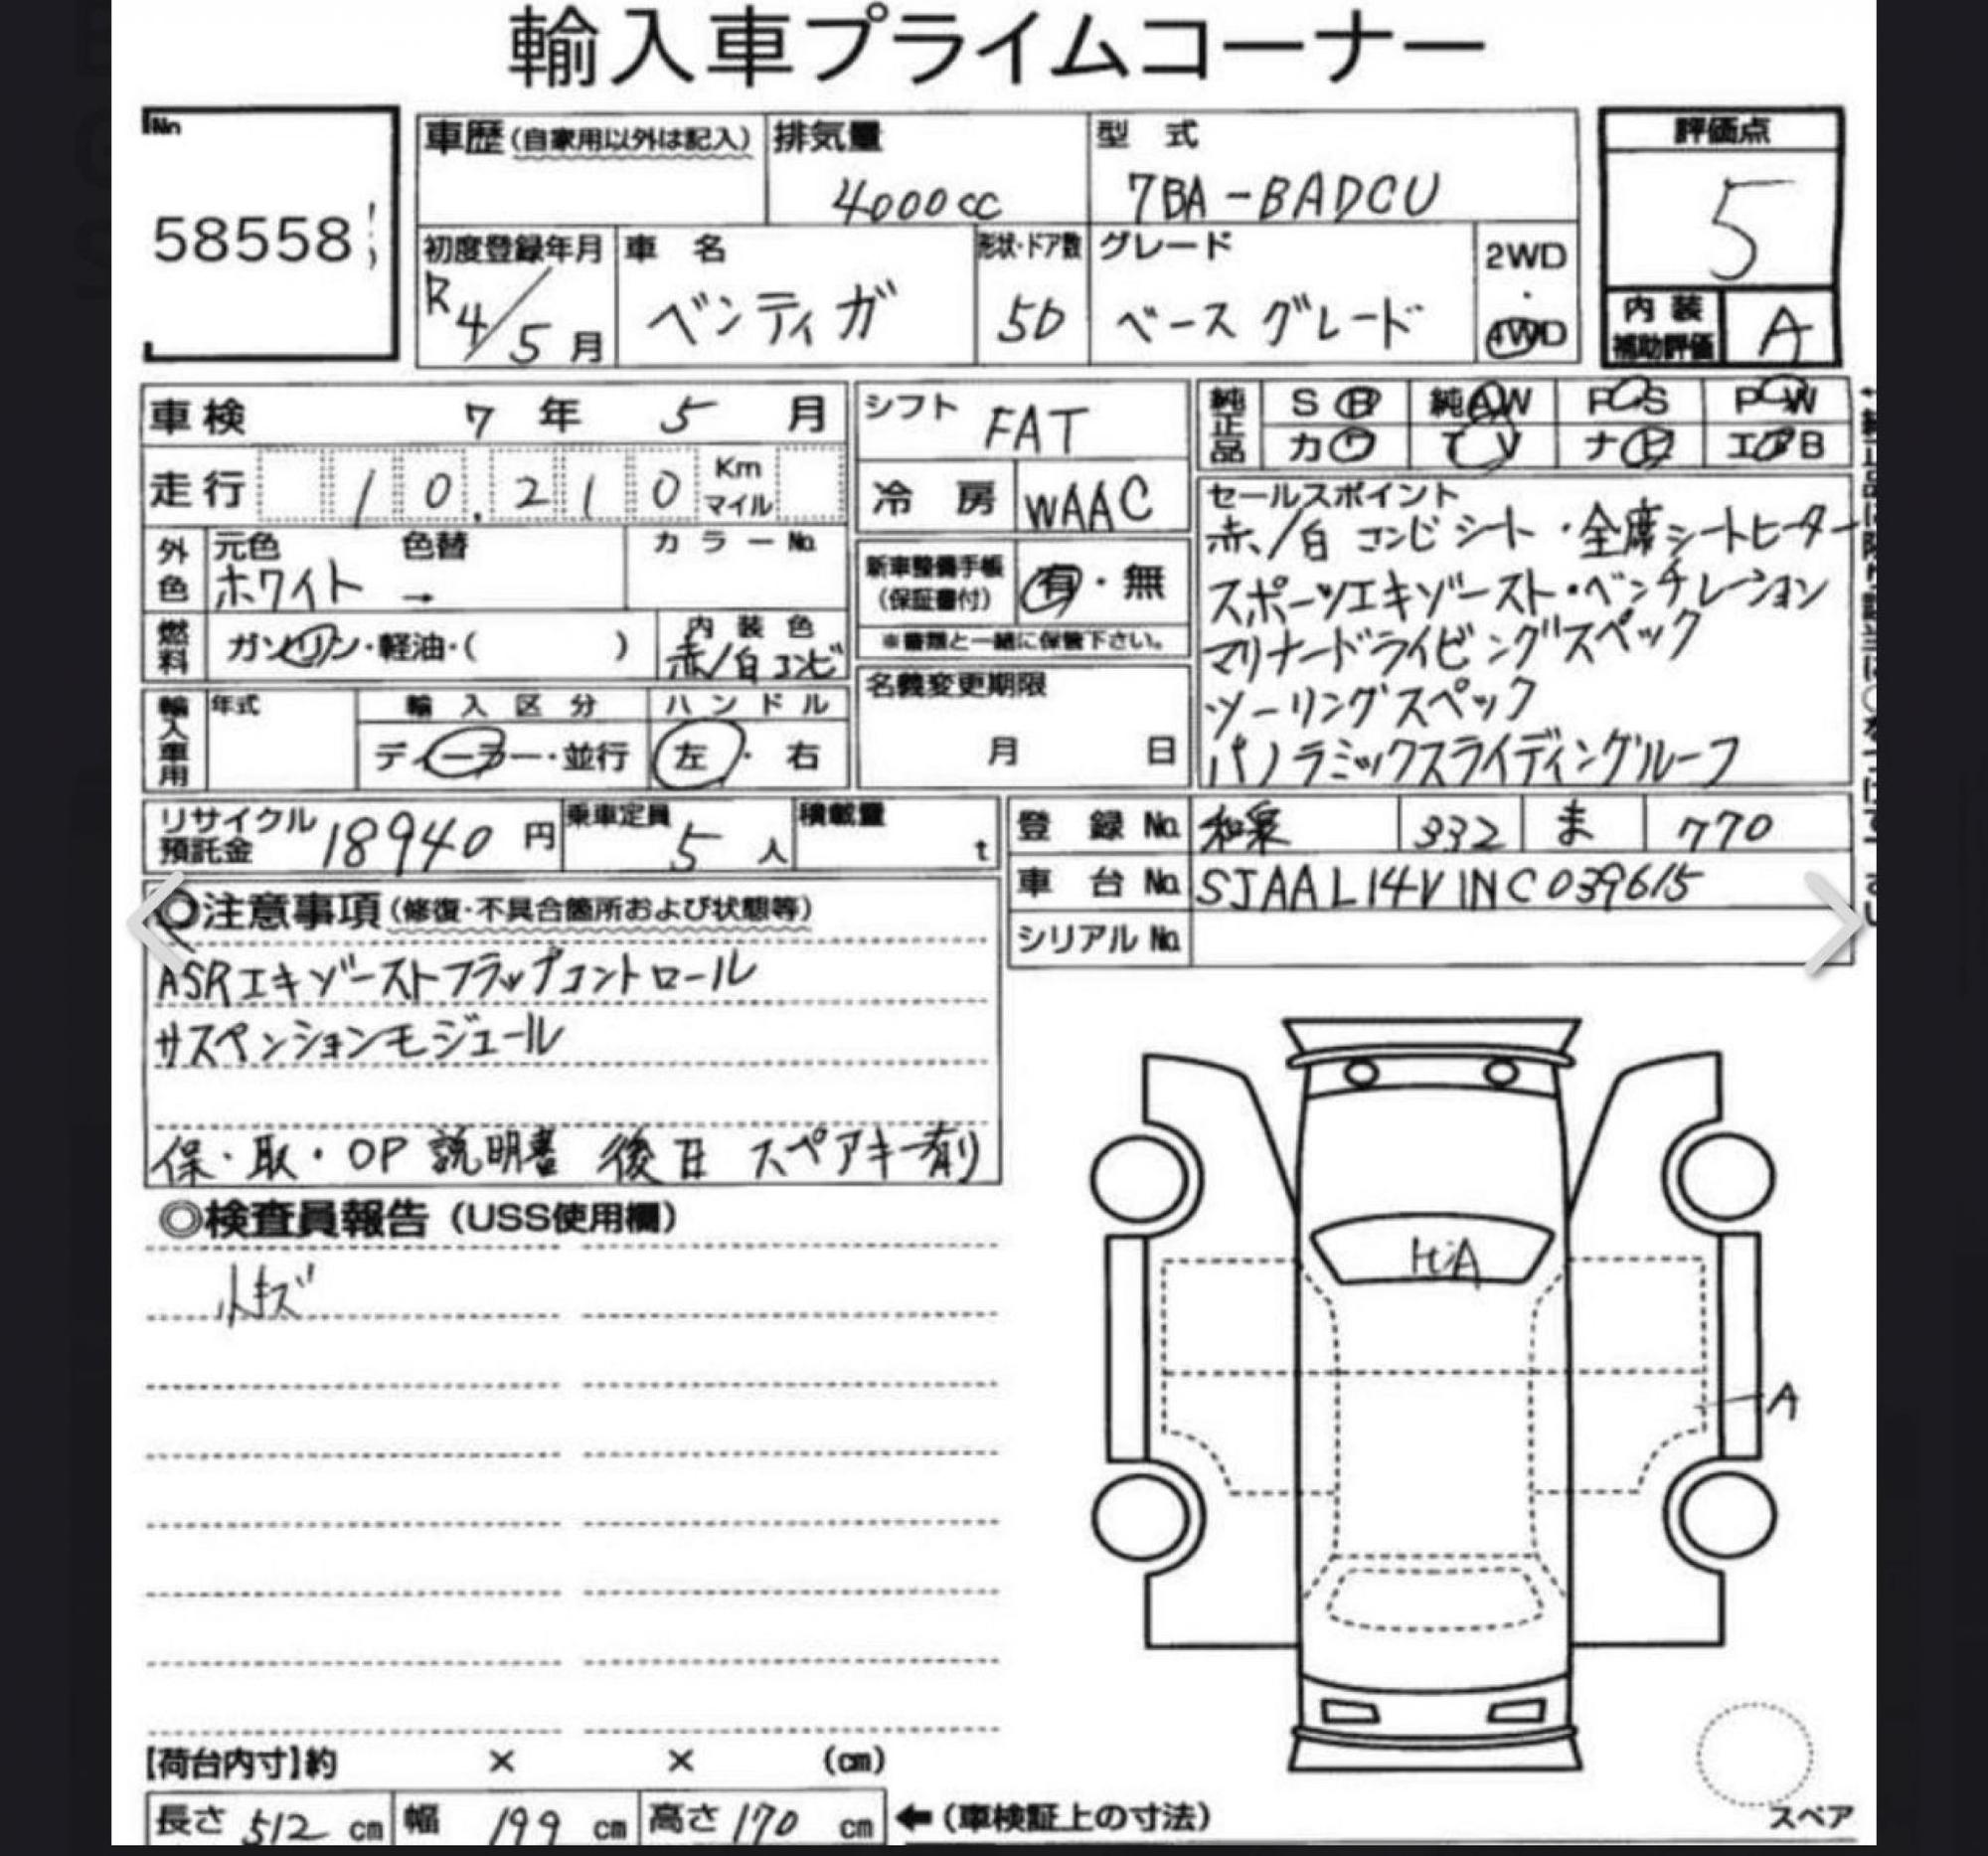 輸入車プライムコーナー
No
58558
車歴(自家用以外は記入)
排気量
4000cc
型 式
7BA-BADCU
評価点
5
初度登録年月
R4/5月
車 名
ベンティガ
形状・ドア数
5D
グレード
ベースグレード
2WD
・
4WD
内装
補助評価
A
車検 7年 5月
シフト FAT
純正品
SR 純AW PS PW
カワ TV ナビ エアB
走行 10.210 Km マイル
冷 房 WAAC
セールスポイント
赤/白 コンビシート・全席シートヒーター
スポーツエキゾースト・ベンチレーション
マリナードライビングスペック
ツーリングスペック
パノラミックスライディングルーフ
外色
元色 色替 カラーNo.
ホワイト →
新車整備手帳
(保証書付)
有・無
※書類と一緒に保管下さい。
燃料
ガソリン・軽油・( )
内装色
赤/白コンビ
名義変更期限
月 日
輸入車用
年式 輸入区分 ハンドル
ディーラー・並行 左・右
リサイクル
預託金 18940 円
乗車定員 5 人
積載量 t
登 録 No. 和泉 332 ま 770
車 台 No. SJAAL14V1NC039615
シリアル No.
◎注意事項(修復・不具合箇所および状態等)
ASRエキゾーストフラップコントロール
サスペンションモジュール
保・取・OP 説明書 後日 スペアキー有り
◎検査員報告(USS使用欄)
小キズ
A
【荷台内寸】約 × × (cm)
長さ 512 cm 幅 199 cm 高さ 170 cm ←(車検証上の寸法)
スペア